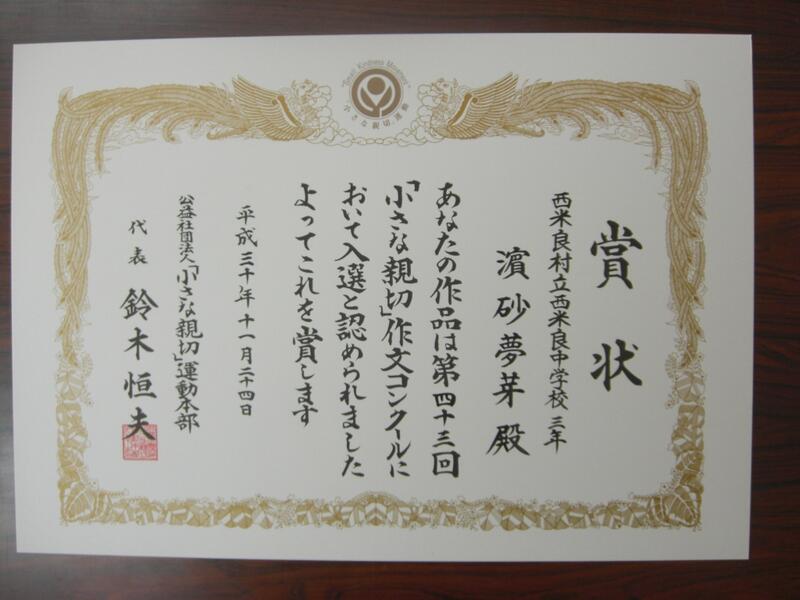 "Small Kindness Movement"
小さな親切運動
賞状
西米良村立西米良中学校 三年
濵砂夢芽 殿
あなたの作品は第四十三回
「小さな親切」作文コンクールに
おいて入選と認められました
よってこれを賞します
平成三十年十一月二十四日
公益社団法人「小さな親切」運動本部
代表 鈴木恒夫